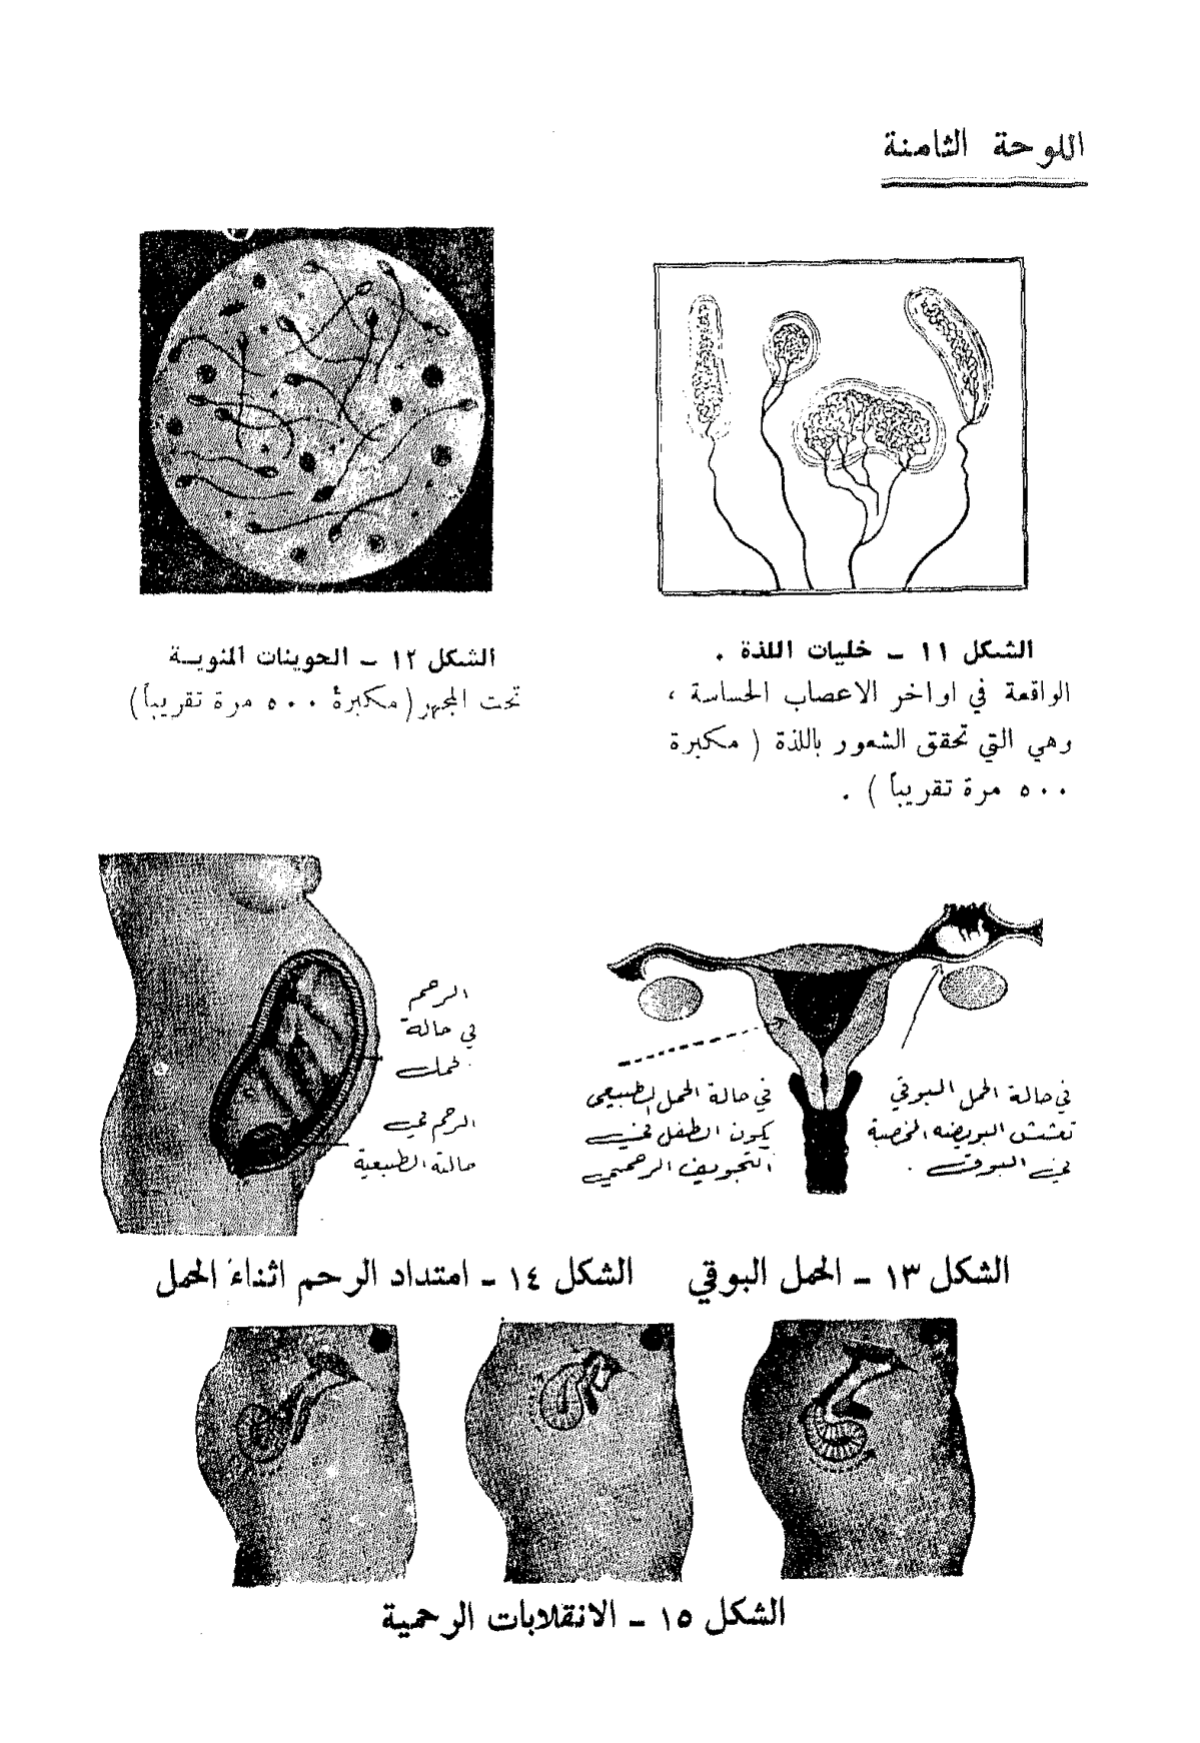 اللوحة الثامنة
الشكل ١١ – خليات اللذة .
الواقعة في اواخر الاعصاب الحساسة ،
وهي التي تحقق الشعور باللذة ( مكبرة
٥٠٠ مرة تقريباً ) .
الشكل ١٢ – الحوينات المنوية
تحت المجهر (مكبرة ٥٠٠ مرة تقريباً)
في حالة الحمل البوقي
تعشش البويضه المخصبة
في البوق .
في حالة الحمل الطبيعي
يكون الطفل في
التجويف الرحمي
الرحم
في حالة
الحمل
الرحم في
حالته الطبيعية
الشكل ١٣ – الحمل البوقي
الشكل ١٤ – امتداد الرحم اثناء الحمل
الشكل ١٥ – الانقلابات الرحمية